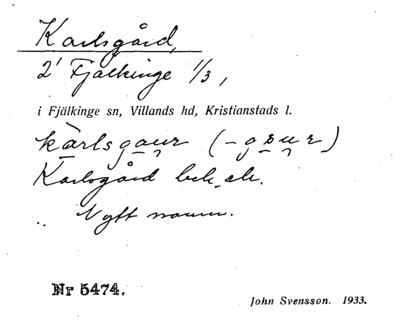 Karlsgård,
2¹ Fjälkinge 1/3,
i Fjälkinge sn, Villands hd, Kristianstads l.
kàrlsgaur (-gzur)
Karlsgård bek. ek.
.. Nytt namn.
Nr 5474.
John Svensson. 1933.